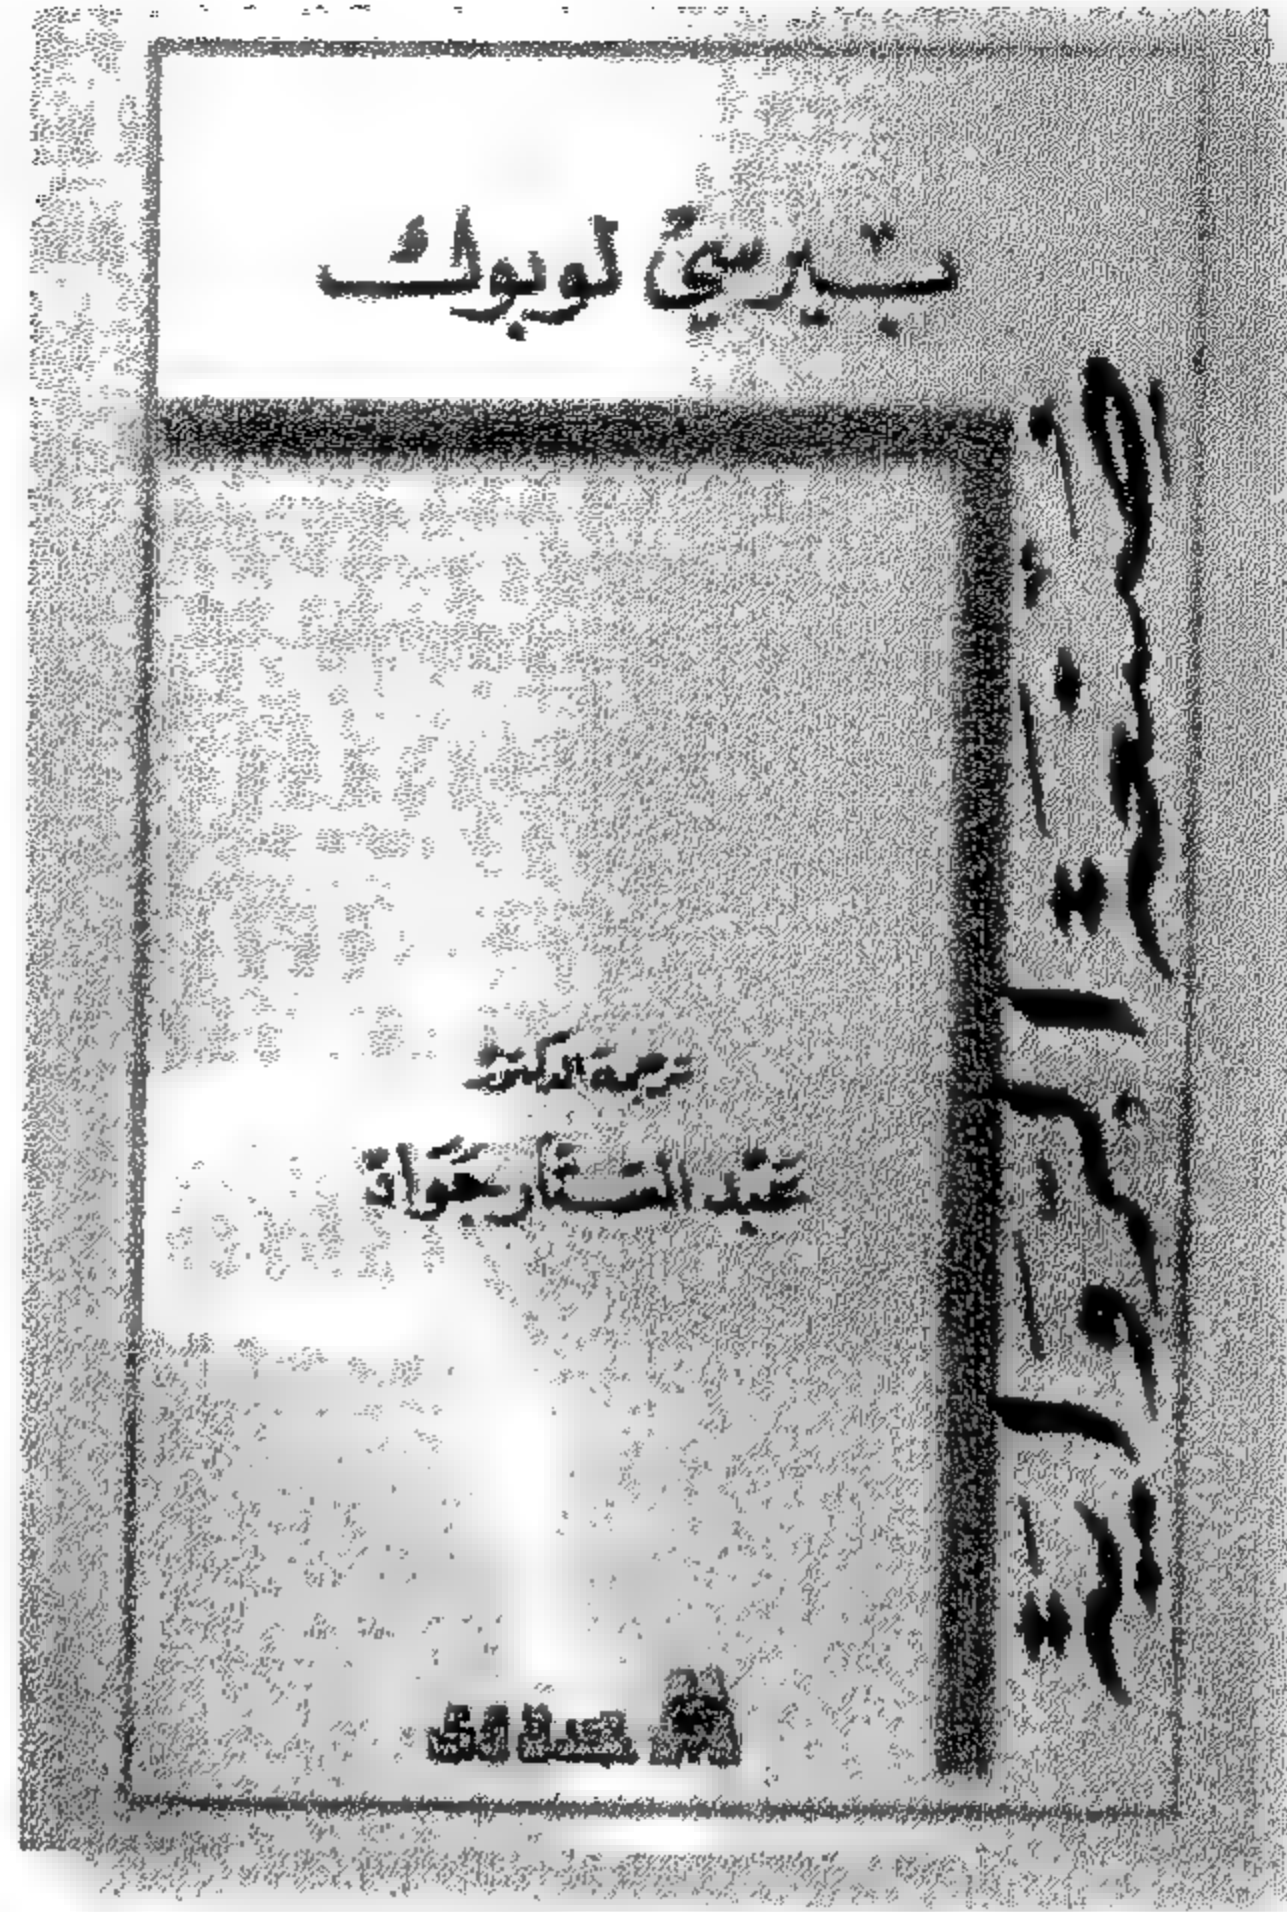 بيرسي لوبوك
صنعة الرواية
ترجمة الدكتور
عبد الستار جواد